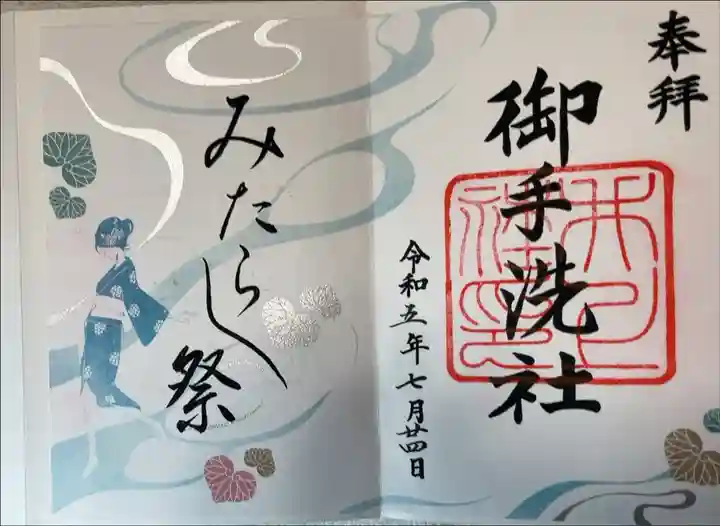 奉拝
御手洗社
令和五年七月廿四日
みたらし祭